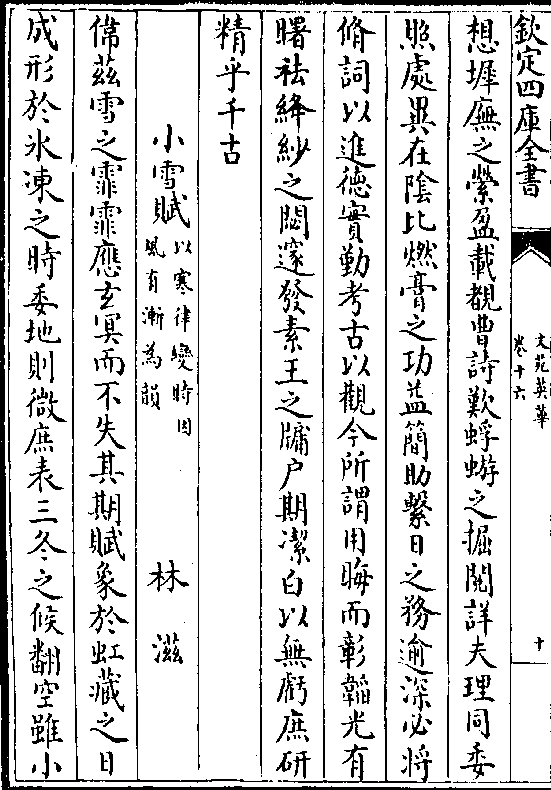 欽定四庫全書
文苑英華
卷十六
十
想墀廡之縈盈載覩曹詩歎蜉蝣之掘閱詳夫理同委
照處異在陰比燃膏之功益簡助繫日之務逾深必將
脩詞以進德實勤考古以觀今所謂用晦而彰韜光有
曙袪絳紗之閟邃發素王之牖户期潔白以無虧庶研
精乎千古
小雪賦以寒律變時因風有漸為韻
林滋
偉兹雪之霏霏應玄冥而不失其期賦象於虹藏之日
成形於氷凍之時委地則微庶表三冬之候翻空雖小